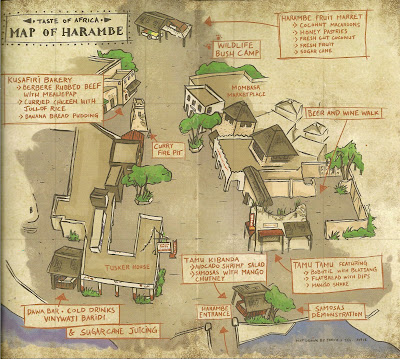 TASTE OF AFRICA
MAP OF HARAMBE
HARAMBE FRUIT MARKET
→ COCONUT MACAROONS
→ HONEY PASTRIES
→ FRESH CUT COCONUT
→ FRESH FRUIT
→ SUGAR CANE
WILDLIFE
BUSH CAMP
KUSAFIRI BAKERY
→ BERBERE RUBBED BEEF
WITH MEALIEPAP
→ CURRIED CHICKEN WITH
JOLLOF RICE
→ BANANA BREAD PUDDING
MOMBASA
MARKETPLACE
BEER AND WINE WALK
CURRY
FIRE PIT
TUSKER HOUSE
TAMU KIBANDA
→ AVOCADO SHRIMP SALAD
→ SIMOSAS WITH MANGO
CHUTNEY
TAMU TAMU FEATURING
→ BOBOTIE WITH BLATJANG
→ FLATBREAD WITH DIPS
→ MANGO SHAKE
DAWA BAR • COLD DRINKS
VINYWAJI BARIDI
& SUGARCANE JUICING
HARAMBE
ENTRANCE
SAMOSAS
DEMONSTRATION